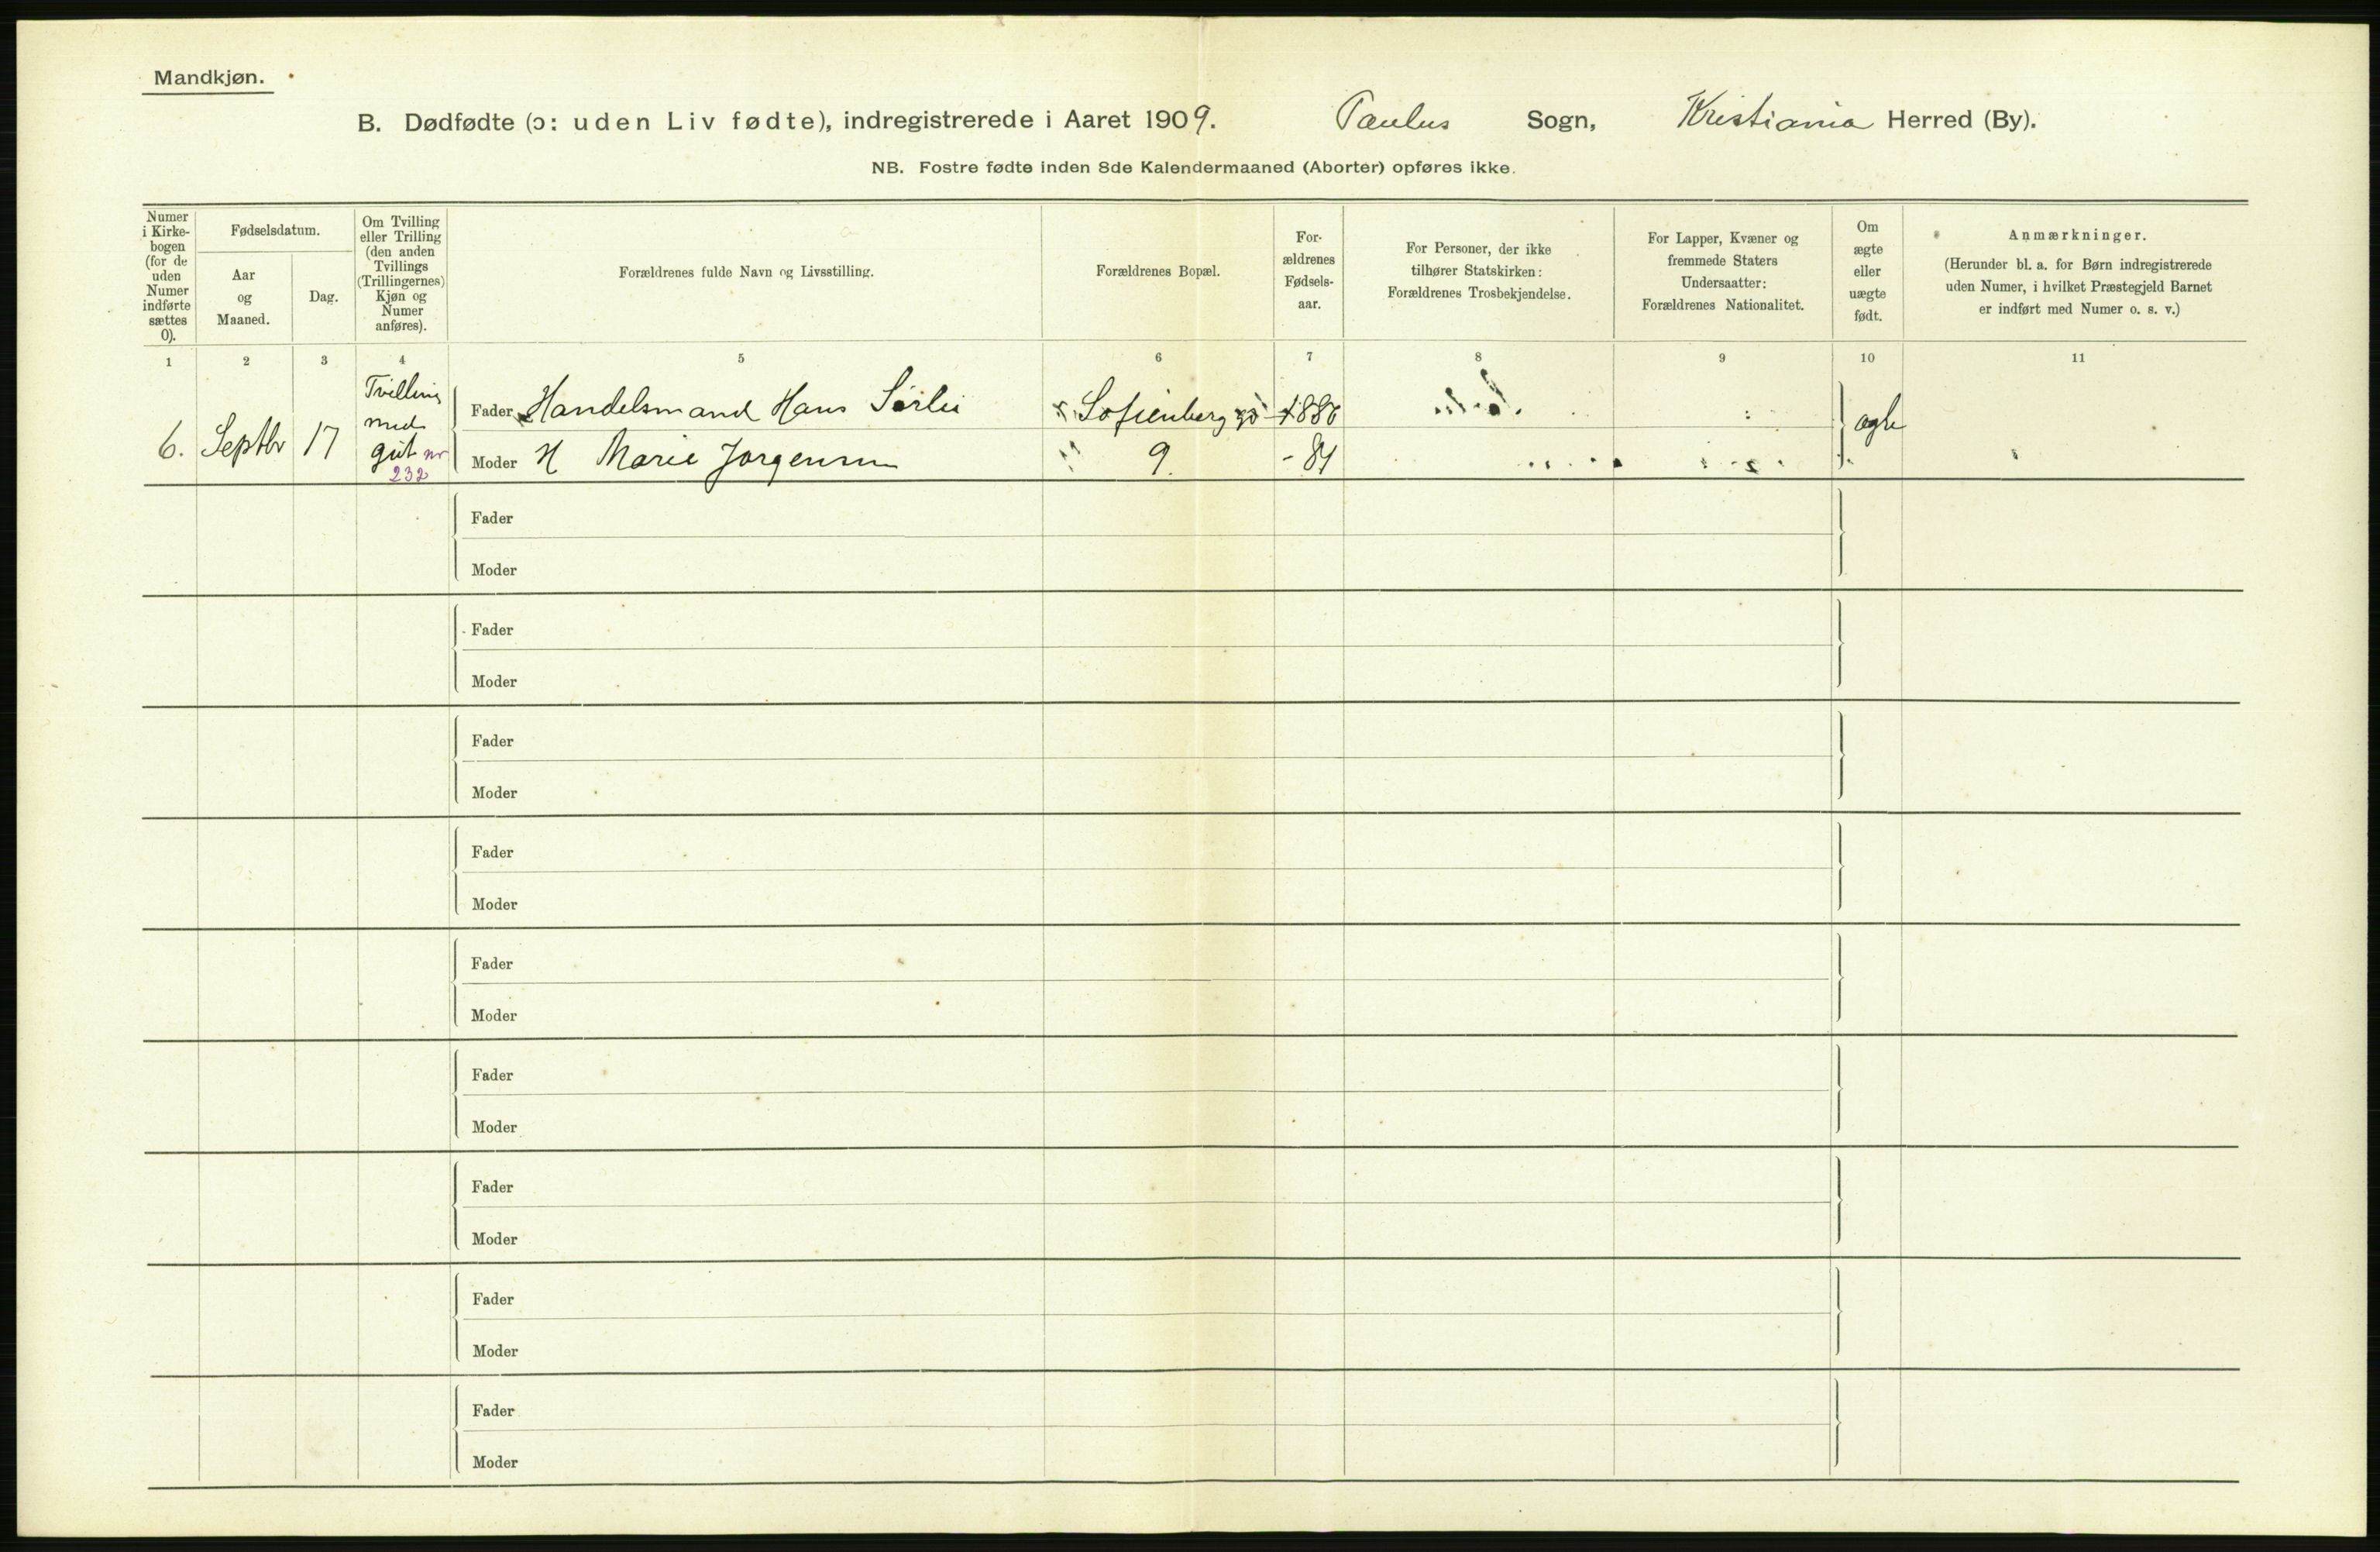 Mandkjøn.
B. Dødfødte (ɔ: uden Liv fødte), indregistrerede i Aaret 1909. Paulus Sogn, Kristiania Herred (By).
NB. Fostre fødte inden 8de Kalendermaaned (Aborter) opføres ikke.
Numer
i Kirke-
bogen
(for de
uden
Numer
indførte
sættes
0).
Fødselsdatum.
Aar
og
Maaned.
Dag.
Om Tvilling
eller Trilling
(den anden
Tvillings
(Trillingernes)
Kjøn og
Numer
anføres).
Forældrenes fulde Navn og Livsstilling.
Forældrenes Bopæl.
For-
ældrenes
Fødsels-
aar.
For Personer, der ikke
tilhører Statskirken:
Forældrenes Trosbekjendelse.
For Lapper, Kvæner og
fremmede Staters
Undersaatter:
Forældrenes Nationalitet.
Om
ægte
eller
uægte
født.
Anmærkninger.
(Herunder bl. a. for Børn indregistrerede
uden Numer, i hvilket Præstegjeld Barnet
er indført med Numer o. s. v.)
1 2 3 4 5 6 7 8 9 10 11
Tvilling
med
gut nr
232
6. Septbr 17
Fader Handelsmand Hans Sørlie Sofienberg gd 1880 ægte
Moder H Marie Jørgensen 9. - 81
Fader
Moder
Fader
Moder
Fader
Moder
Fader
Moder
Fader
Moder
Fader
Moder
Fader
Moder
Fader
Moder
Fader
Moder